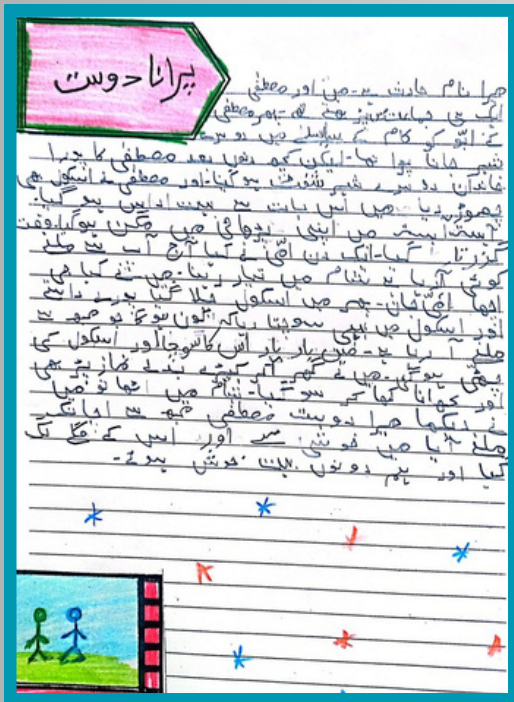 پرانا دوست
میرا نام حارث ہے۔ میں اور مصطفی
ایک ہی جماعت میں پڑھتے تھے۔ پھر مصطفی
کے ابّو کو کام کے سلسلے میں دوسرے
شہر جانا پڑا تھا۔ لیکن کچھ دنوں بعد مصطفی کا پورا
خاندان دوسرے شہر شفٹ ہو گیا۔ اور مصطفی نے اسکول بھی
چھوڑ دیا۔ میں اس بات سے بہت اداس ہو گیا۔
آہستہ آہستہ میں اپنی پڑھائی میں مگن ہوگیا۔ وقت
گزرتا گیا۔ ایک دن امّی نے کہا آج آپ سے ملنے
کوئی آرہا ہے شام میں تیار رہنا۔ میں نے کہا جی
اچھا امّی جان۔ پھر میں اسکول چلا گیا پورے راستے
اور اسکول میں یہی سوچتا رہا کہ کون ہوگا جو مجھ سے
ملنے آ رہا ہے۔ میں بار بار اس کا سوچا اور اسکول کی
چھٹی ہوگی۔ میں نے گھر آکر کپڑے بدلے نماز پڑھی
اور کھانا کھا کر سو گیا۔ شام میں اٹھا تو میں
نے دیکھا میرا دوست مصطفی مجھ سے اچانک
ملنے آیا میں خوشی سے اور اس کے گلے لگ
گیا اور ہم دونوں بہت خوش ہوئے۔